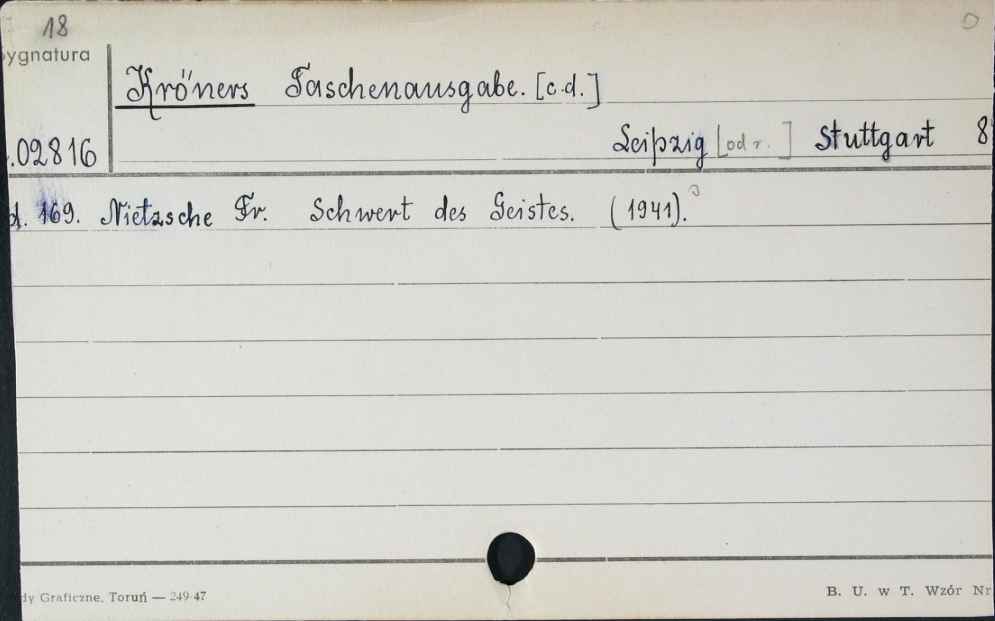 18
ygnatura
Kröners Taschenausgabe. [c.d.]
.02816
Leipzig [od r. ] Stuttgart 8
d. 169. Nietzsche Fr. Schwert des Geistes. (1941).
dy Graficzne, Toruń — 249/47
B. U. w T. Wzór Nr